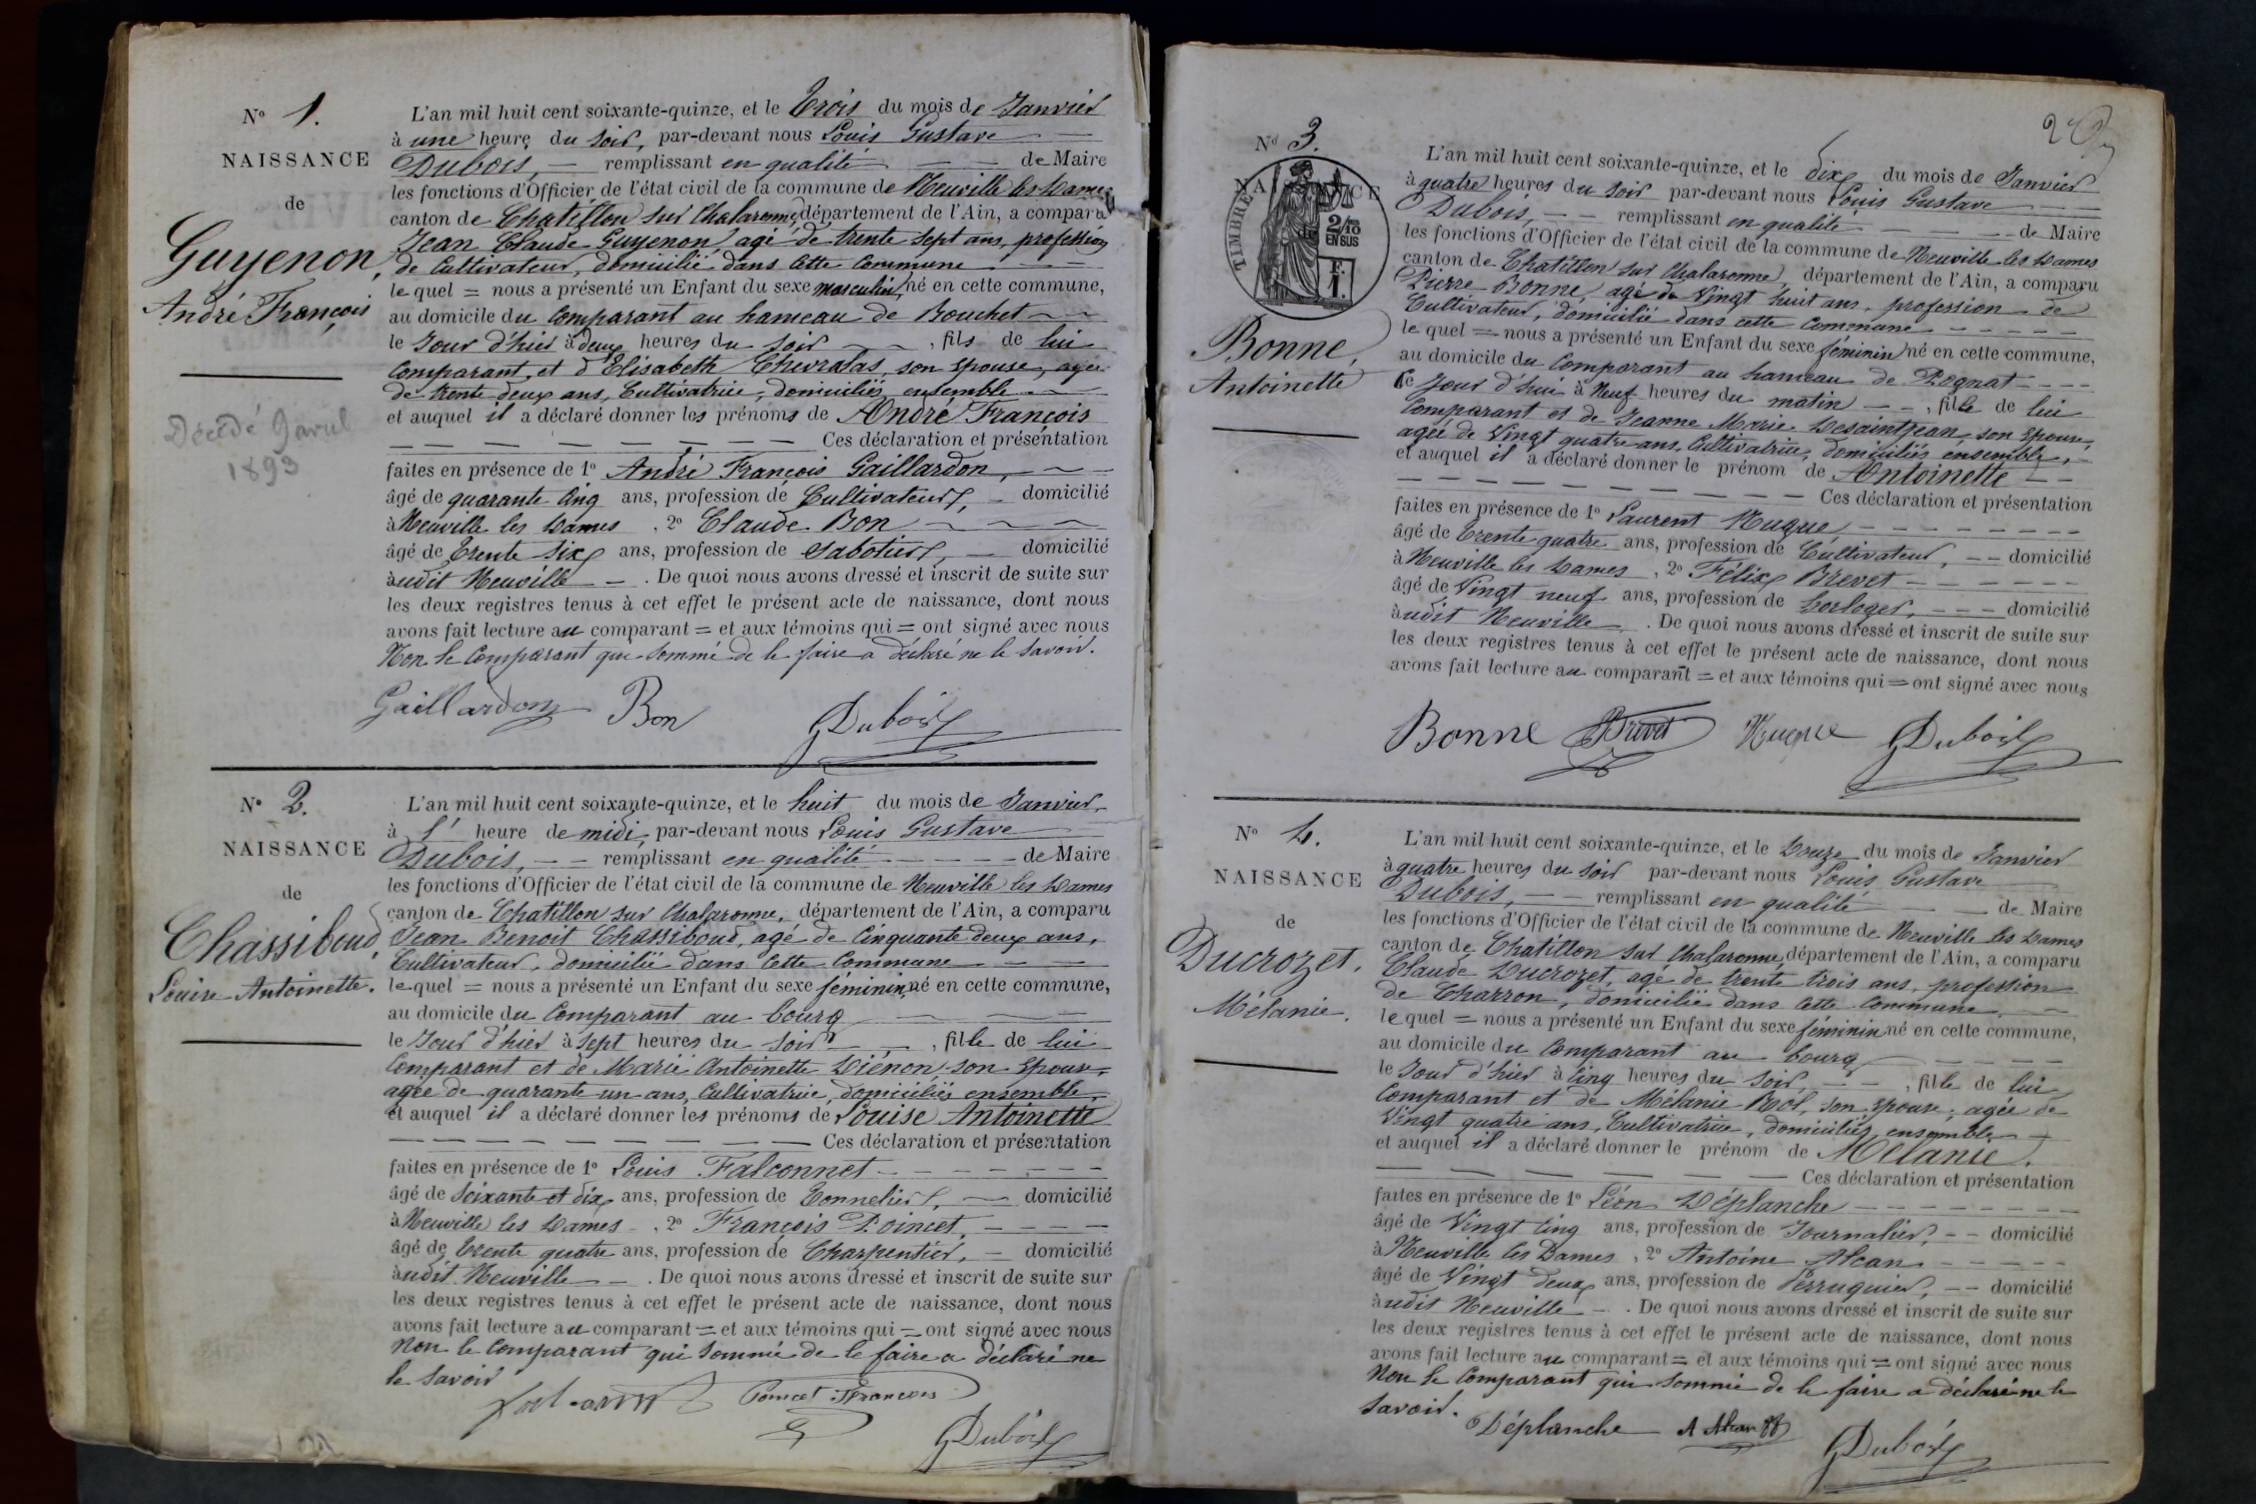 N° 1.
NAISSANCE
de
Guyenon,
André François
Décédé 9 avril
1893
L'an mil huit cent soixante-quinze, et le Trois du mois de Janvier
à une heure du soir, par-devant nous Louis Gustave
Dubois, — remplissant en qualité — — de Maire
les fonctions d'Officier de l'état civil de la commune de Neuville les Dames
canton de Chatillon sur Chalaronne, département de l'Ain, a comparu
Jean Claude Guyenon, agé de trente sept ans, profession
de Cultivateur, domicilié dans cette Commune — —
le quel = nous a présenté un Enfant du sexe masculin, né en cette commune,
au domicile du Comparant au hameau de Bouchet — —
le Jour d'hier à deux heures du soir — — , fils de lui
Comparant, et d'Elisabeth Chevralas, son épouse, agée
de trente deux ans, Cultivatrice, domiciliés ensemble —
et auquel il a déclaré donner les prénoms de André François
— — — — — — — Ces déclaration et présentation
faites en présence de 1° André François Gaillardon, — —
âgé de quarante cinq ans, profession de Cultivateur, — domicilié
à Neuville les Dames , 2° Claude Bon — — —
âgé de Trente six ans, profession de Sabotier, — domicilié
audit Neuville — . De quoi nous avons dressé et inscrit de suite sur
les deux registres tenus à cet effet le présent acte de naissance, dont nous
avons fait lecture au comparant = et aux témoins qui = ont signé avec nous
Non le Comparant que sommé de le faire a déclaré ne le savoir.
Gaillardon Bon GDubois
N° 2.
NAISSANCE
de
Chassiboud,
Louise Antoinette.
L'an mil huit cent soixante-quinze, et le huit du mois de Janvier
à l' heure de midi, par-devant nous Louis Gustave
Dubois, — — remplissant en qualité — — — de Maire
les fonctions d'Officier de l'état civil de la commune de Neuville les Dames
canton de Chatillon sur Chalaronne, département de l'Ain, a comparu
Jean Benoit Chassiboud, agé de Cinquante deux ans,
Cultivateur, domicilié dans cette Commune — —
le quel = nous a présenté un Enfant du sexe féminin, né en cette commune,
au domicile du Comparant au bourg — — —
le Jour d'hier à sept heures du soir — — , fille de lui
Comparant et de Marie Antoinette Diénon, son épouse,
agée de quarante un ans, Cultivatrice, domiciliés ensemble,
et auquel il a déclaré donner les prénoms de Louise Antoinette
— — — — — — — Ces déclaration et présentation
faites en présence de 1° Louis Falconnet — — — — —
âgé de Soixante et dix ans, profession de Tonnelier, — domicilié
à Neuville les Dames — , 2° François Poincet, — — — —
âgé de Trente quatre ans, profession de Charpentier, — domicilié
audit Neuville — . De quoi nous avons dressé et inscrit de suite sur
les deux registres tenus à cet effet le présent acte de naissance, dont nous
avons fait lecture au comparant = et aux témoins qui = ont signé avec nous
Non le Comparant qui sommé de le faire a déclaré ne
le savoir
Poincet François
GDubois
2
N° 3.
NAISSANCE
de
TIMBRE
2/10
EN SUS
F.
1.
Bonne,
Antoinette
L'an mil huit cent soixante-quinze, et le dix du mois de Janvier
à quatre heures du soir par-devant nous Louis Gustave
Dubois, — — remplissant en qualité — — — de Maire
les fonctions d'Officier de l'état civil de la commune de Neuville les Dames
canton de Chatillon sur Chalaronne, département de l'Ain, a comparu
Pierre Bonne, agé de Vingt huit ans, profession de
Cultivateur, domicilié dans cette Commune — — — —
le quel = nous a présenté un Enfant du sexe féminin né en cette commune,
au domicile du Comparant au hameau de Rognat — — —
le Jour d'hui à Neuf heures du matin — — , fille de lui
Comparant et de Jeanne Marie Desaintjean, son épouse,
agée de Vingt quatre ans, Cultivatrice, domiciliés ensemble, —
et auquel il a déclaré donner le prénom de Antoinette — —
— — — — — — — Ces déclaration et présentation
faites en présence de 1° Laurent Nugue, — — — — —
âgé de Trente quatre ans, profession de Cultivateur, — — domicilié
à Neuville les Dames , 2° Félix Brevet — — — — —
âgé de Vingt neuf ans, profession de horloger, — — — domicilié
audit Neuville — . De quoi nous avons dressé et inscrit de suite sur
les deux registres tenus à cet effet le présent acte de naissance, dont nous
avons fait lecture au comparant = et aux témoins qui = ont signé avec nous
Bonne Brevet Nugue GDubois
N° 4.
NAISSANCE
de
Ducrozet.
Mélanie.
L'an mil huit cent soixante-quinze, et le Douze du mois de Janvier
à quatre heures du soir par-devant nous Louis Gustave
Dubois, — — remplissant en qualité — — de Maire
les fonctions d'Officier de l'état civil de la commune de Neuville les Dames
canton de Chatillon sur Chalaronne, département de l'Ain, a comparu
Claude Ducrozet, agé de trente trois ans, profession
de Charron, domicilié dans cette Commune, —
le quel = nous a présenté un Enfant du sexe féminin né en cette commune,
au domicile du Comparant au bourg — — — —
le Jour d'hier à Cinq heures du soir, — — , fille de lui
Comparant et de Mélanie Bol, son épouse, agée de
Vingt quatre ans, Cultivatrice, domiciliés ensemble —
et auquel il a déclaré donner le prénom de Mélanie.
— — — — — — — Ces déclaration et présentation
faites en présence de 1° Léon Déplanche — — — — —
âgé de Vingt cinq ans, profession de Journalier, — — domicilié
à Neuville les Dames , 2° Antoine Alcan — — — — —
âgé de Vingt deux ans, profession de Perruquier, — — domicilié
audit Neuville — . De quoi nous avons dressé et inscrit de suite sur
les deux registres tenus à cet effet le présent acte de naissance, dont nous
avons fait lecture au comparant = et aux témoins qui = ont signé avec nous
Non le Comparant qui sommé de le faire a déclaré ne le
savoir.
Déplanche A Alcan GDubois